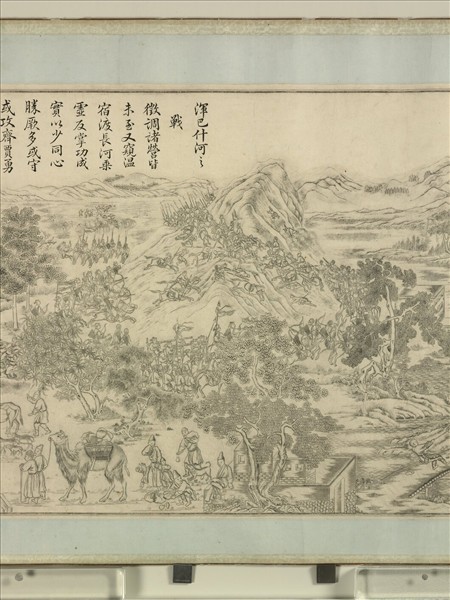 渾巴什河之
戰
徵調諸營皆
未至又窺温
宿渡長河乗
靈反掌功成
實以少同心
勝厥多或守
或攻齊賈勇